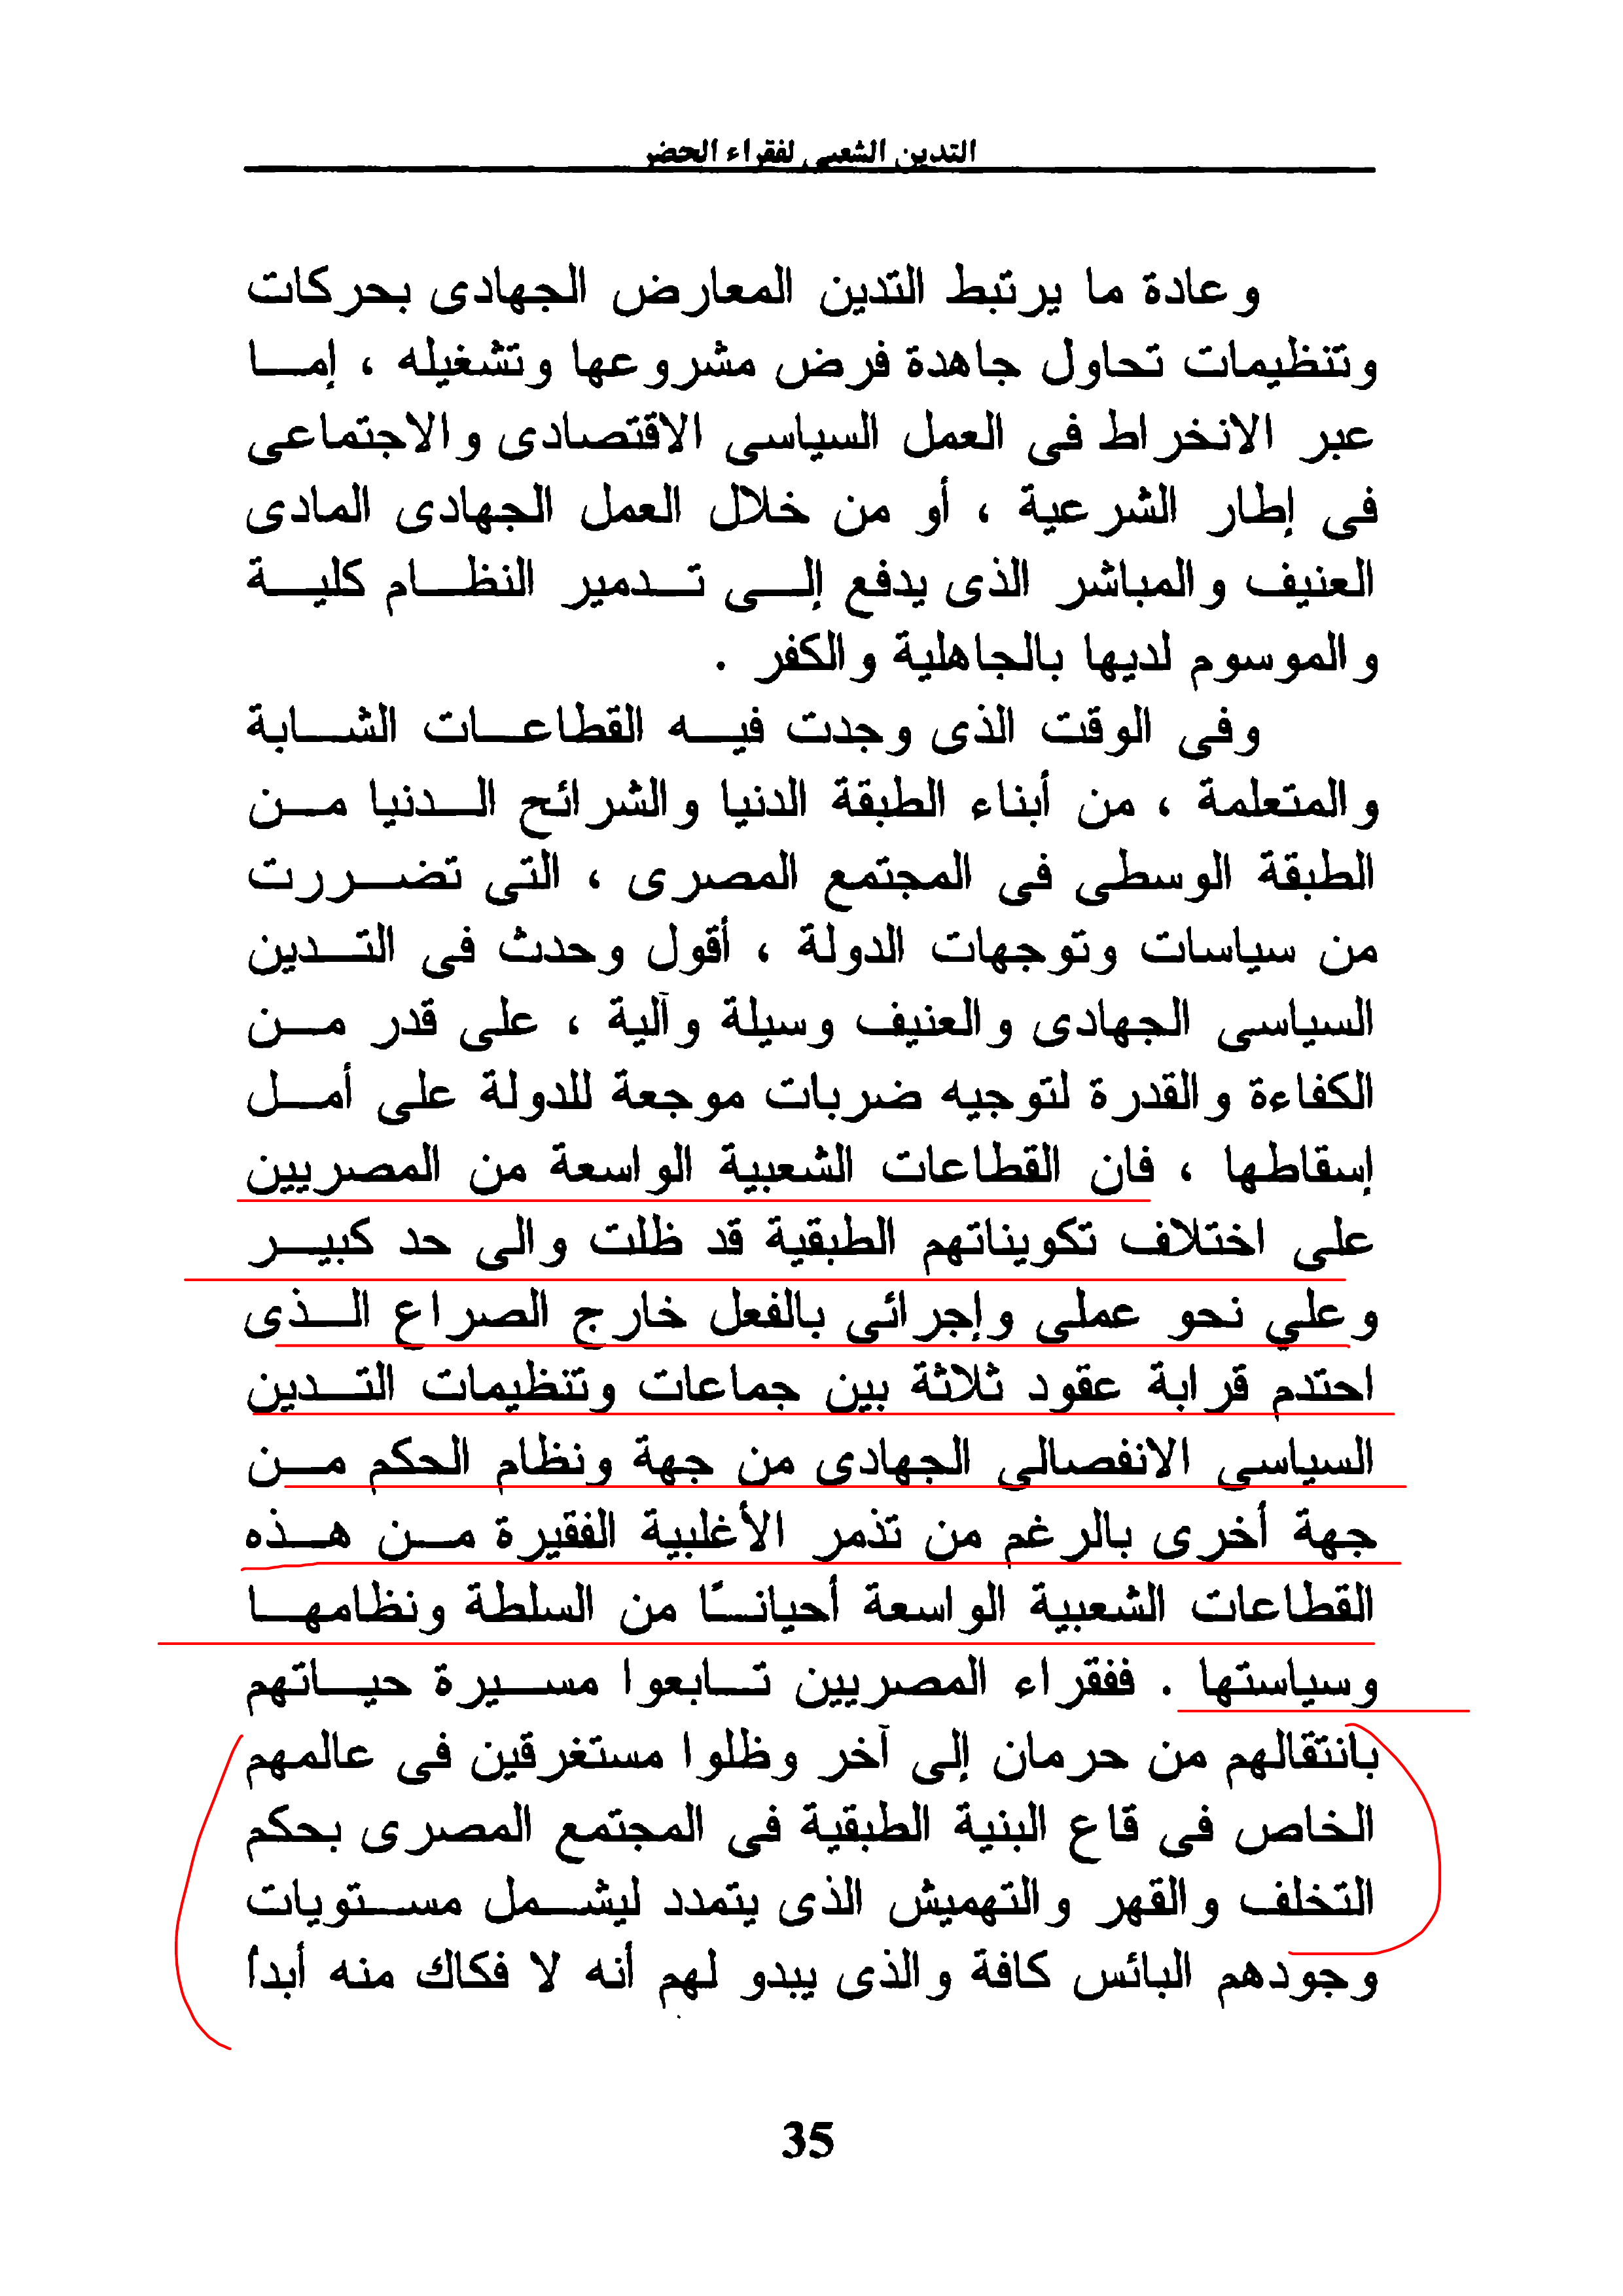 التدين الشعبى لفقراء الحضر
وعادة ما يرتبط التدين المعارض الجهادى بحركات
وتنظيمات تحاول جاهدة فرض مشروعها وتشغيله ، إمــا
عبر الانخراط فى العمل السياسى الاقتصادى والاجتماعى
فى إطار الشرعية ، أو من خلال العمل الجهادى المادى
العنيف والمباشر الذى يدفع إلــى تــدمير النظــام كليــة
والموسوم لديها بالجاهلية والكفر .
وفى الوقت الذى وجدت فيــه القطاعــات الشــابة
والمتعلمة ، من أبناء الطبقة الدنيا والشرائح الــدنيا مــن
الطبقة الوسطى فى المجتمع المصرى ، التى تضــررت
من سياسات وتوجهات الدولة ، أقول وحدث فى التــدين
السياسى الجهادى والعنيف وسيلة وآلية ، على قدر مــن
الكفاءة والقدرة لتوجيه ضربات موجعة للدولة على أمــل
إسقاطها ، فان القطاعات الشعبية الواسعة من المصريين
على اختلاف تكويناتهم الطبقية قد ظلت والى حد كبيــر
وعلي نحو عملى وإجرائى بالفعل خارج الصراع الــذى
احتدم قرابة عقود ثلاثة بين جماعات وتنظيمات التــدين
السياسى الانفصالى الجهادى من جهة ونظام الحكم مــن
جهة أخرى بالرغم من تذمر الأغلبية الفقيرة مــن هــذه
القطاعات الشعبية الواسعة أحيانــًا من السلطة ونظامهــا
وسياستها . ففقراء المصريين تــابعوا مســيرة حيــاتهم
بانتقالهم من حرمان إلى آخر وظلوا مستغرقين فى عالمهم
الخاص فى قاع البنية الطبقية فى المجتمع المصرى بحكم
التخلف والقهر والتهميش الذى يتمدد ليشــمل مســتويات
وجودهم البائس كافة والذى يبدو لهم أنه لا فكاك منه أبدأ
35